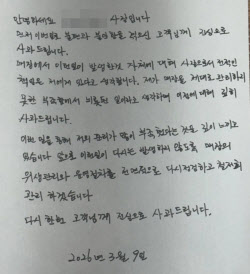 안녕하세요 사장입니다
먼저 이번일로 불편과 불안함을 겪으신 고객님께 진심으로
사과드립니다.
매장에서 이런일이 발생한것 자체에 대해 사장으로서 전적인
책임은 저에게 있다고 생각합니다. 제가 매장을 제대로 관리하지
못한 부족함에서 비롯된 일이라고 생각하며 이점에 대해 깊이
사과드립니다.
이번 일을 통해 저의 관리가 많이 부족했다는것을 깊이 느끼고
있습니다 앞으로 이런일이 다시는 발생하지 않도록 매장의
위생관리와 운영절차를 전면적으로 다시점검하고 철저히
관리 하겠습니다
다시 한번 고객님께 진심으로 사과드립니다.
2026년 3월 9일